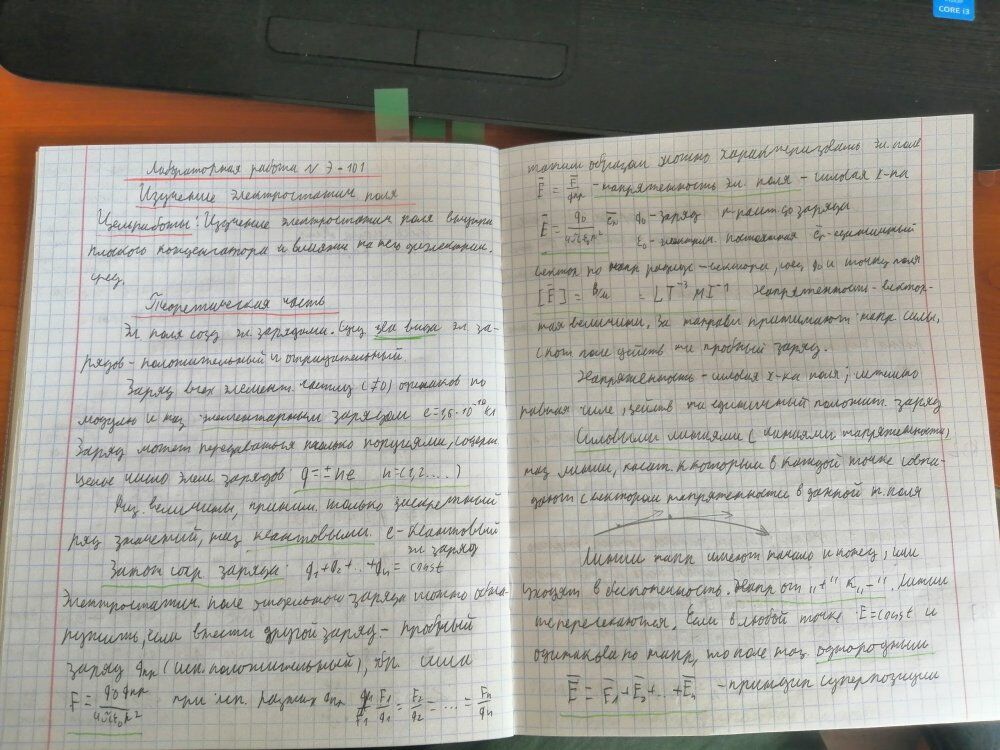 CORE i3
Лабораторная работа № Э-101
Изучение электростатич поля
Цель работы: Изучение электростатич поля внутри
плоского конденсатора и влияния на него диэлектрич.
сред.
Теоретическая часть
Эл поля созд эл. зарядами. Сущ два вида эл за-
рядов - положительный и отрицательный
Заряд всех элемент. частиц (≠0) одинаков по
модулю и наз элементарным зарядом e=1,6·10⁻¹⁹ Кл
Заряд может передаваться только порциями, содерж
целое число элем зарядов q=±ne n=(1,2....)
Физ. величины, приним. только дискретный
ряд значений, наз квантовыми. e - квантовый
эл заряд
Закон сохр. заряда: q₁+q₂+..+qₙ = const
Электростатич. поле отдельного заряда можно обна-
ружить, если внести другой заряд - пробный
заряд qпр (исп. положительный), обр. сила
F = q₀qпр/4πε₀r² при исп. разных qпр F₁/q₁ = F₂/q₂ = ... = Fₙ/qₙ
таким образом можно характеризовать эл. поле
E = F/qпр - напряженность эл. поля - силовая х-ка
E = q₀/4πε₀r² eᵣ q₀ - заряд r - расст. до заряда
ε₀ - электрич. постоянная eᵣ - единичный
вектор по напр радиус-вектора, соед q₀ и точку поля
[E] = В/м = LT⁻³MI⁻¹ Напряженность - вектор-
ная величина, за направл принимают напр силы,
с кот поле действ на пробный заряд.
Напряженность - силовая х-ка поля, численно
равная силе, действ на единичный положит. заряд
Силовыми линиями (линиями напряженности)
наз линии, касат. к которым в каждой точке совпа-
дают с вектором напряженности в данной т. поля
Линии напр имеют начало и конец, или
уходят в бесконечность. Напр от "+" к "-". Линии
не пересекаются. Если в любой точке E=const и
одинакова по напр, то поле наз однородным
E = E₁+E₂+..+Eₙ - принцип суперпозиции